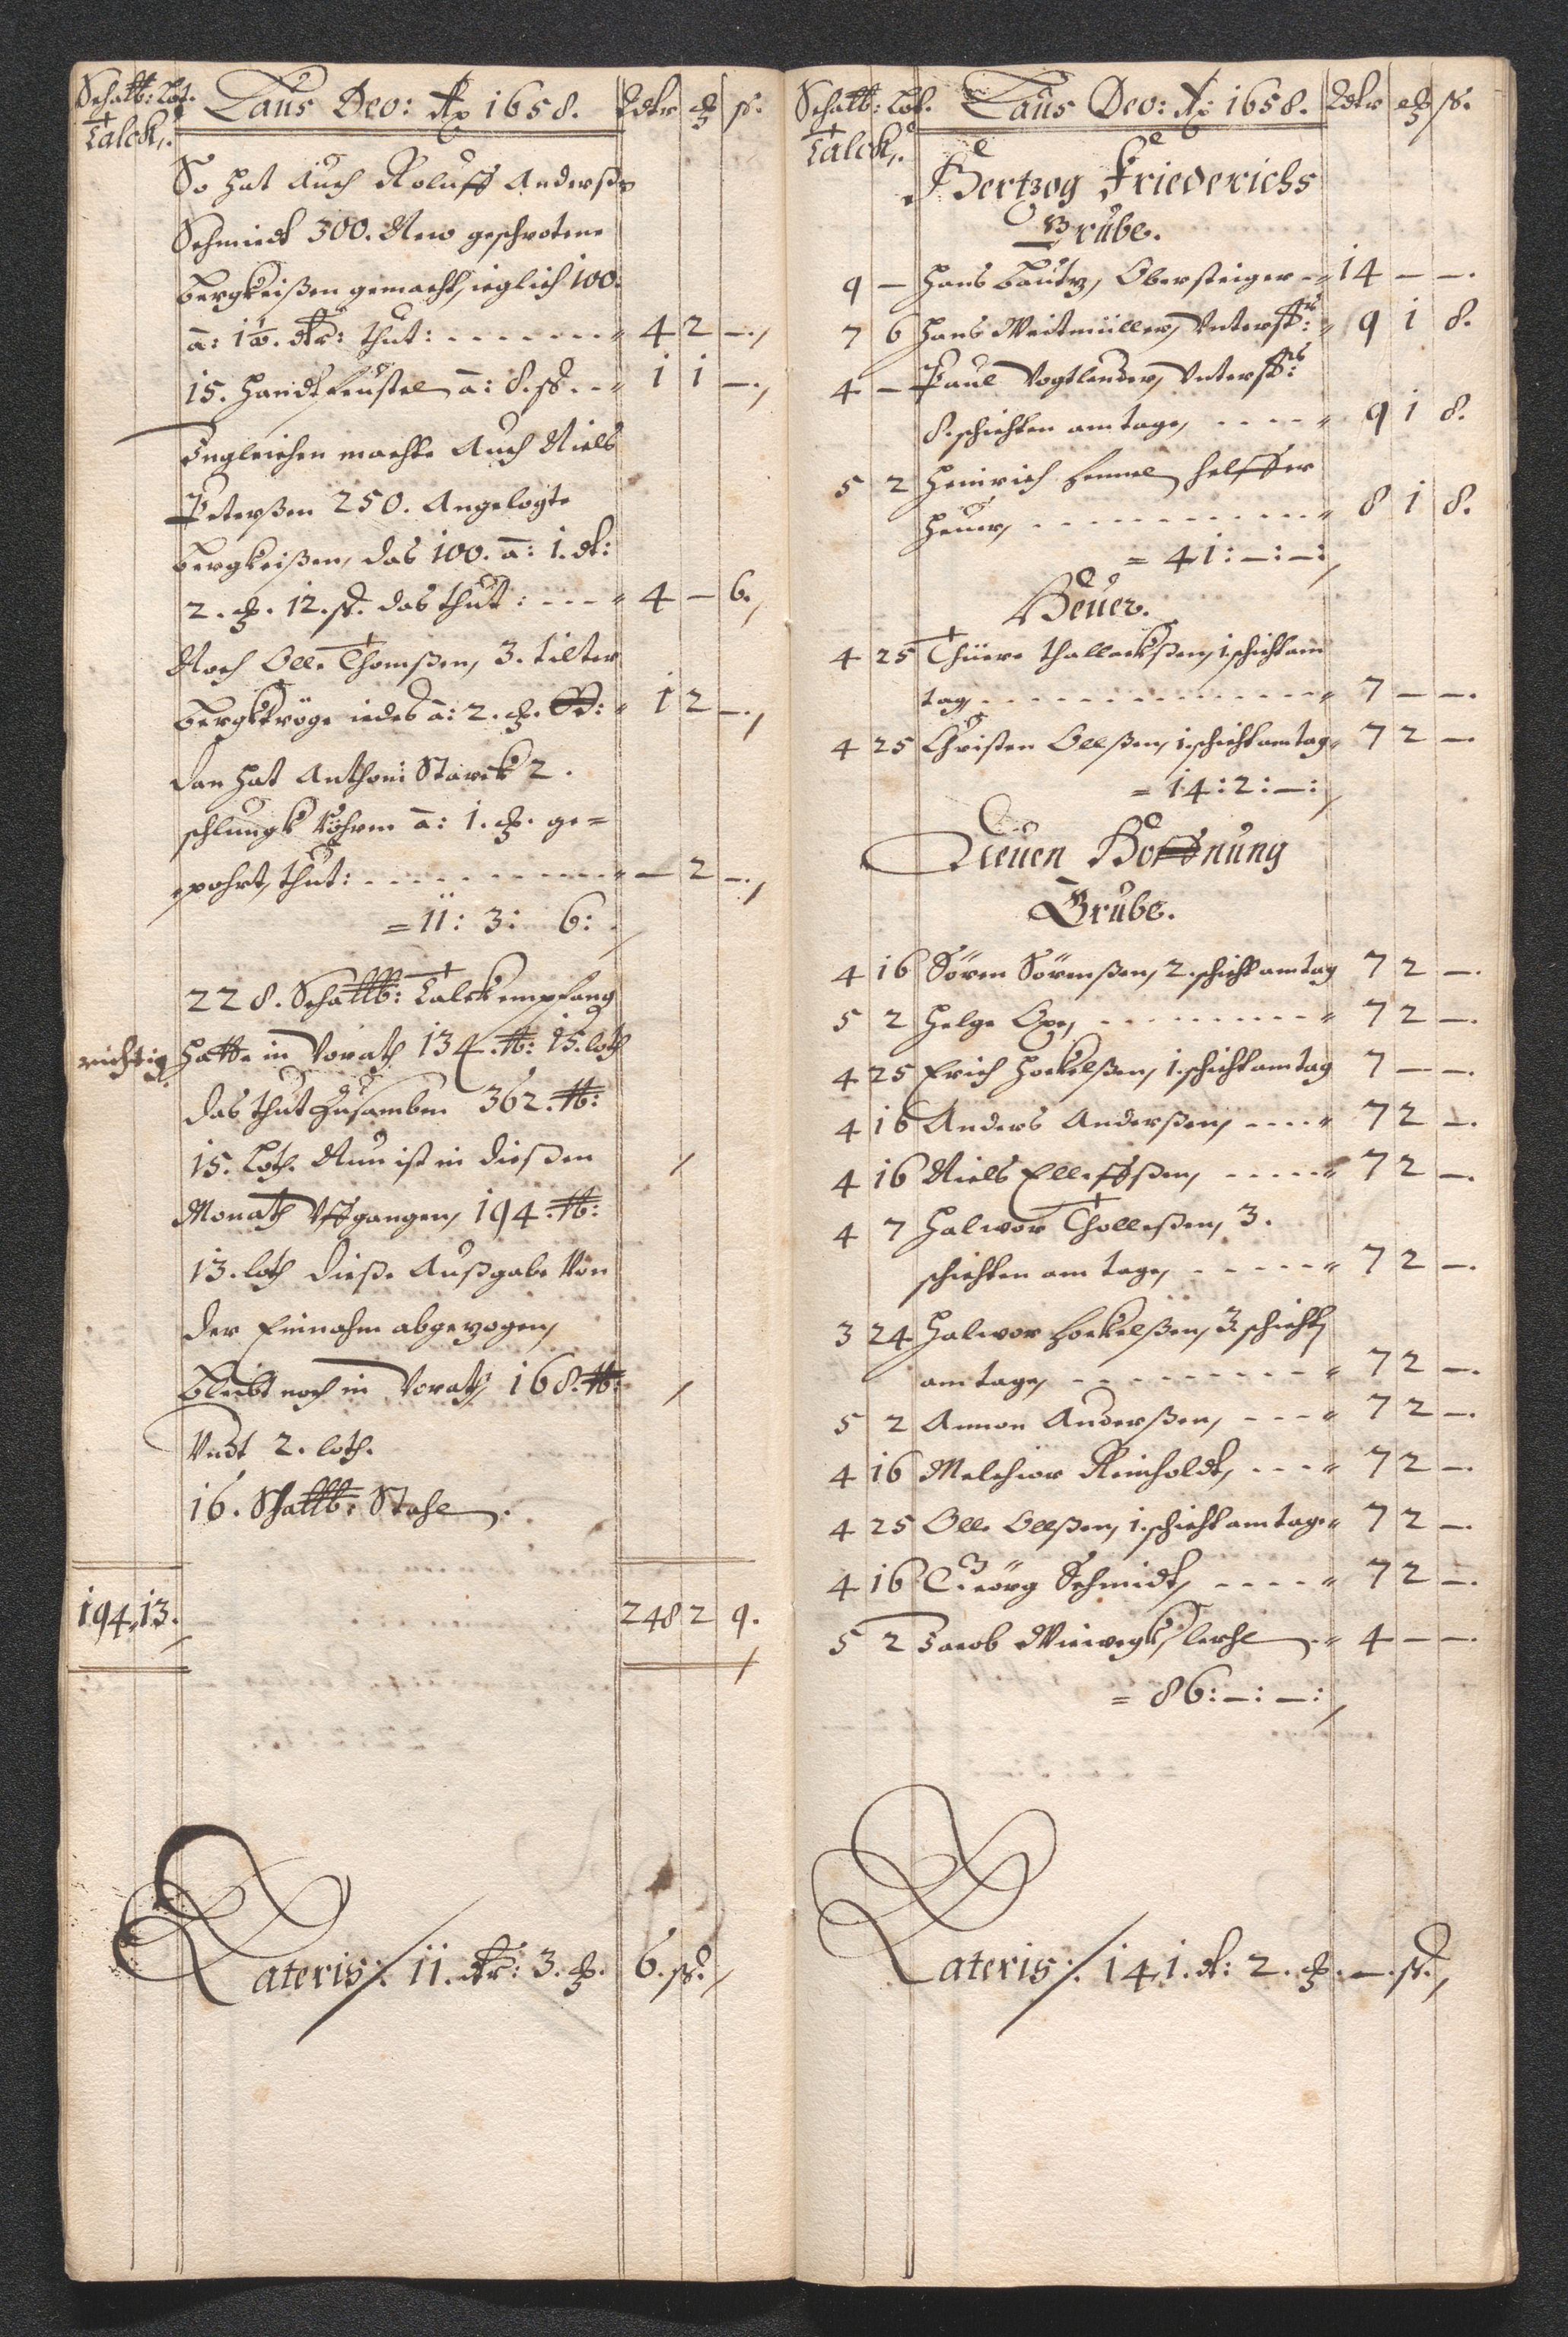 Schalb: Lot.
Talck.
Laus Deo: Ao 1658. Rdtr ß.
So hat Auch Roluff Anderß
Schmiedt 300. New geschrotene
bergkeißen gemacht, ieglich 100.
ā: 1½. dtr: thut: - - - - - - - 4 2 —.
15. Handtfeustel ā: 8. ß. - - 1 1 —.
Ingleichen machte Auch Niels
Peterßen 250. Angelegte
bergkeißen, das 100. ā: 1. dt:
2. 12. ß. das thut: - - - 4 — 6.
Noch Olle Thomßen, 3. tilter
bergktröge iedes ā: 2. 1 2 —.
dan hat Anthoni Starck 2.
schlungk röhren ā: 1. ge=
pohrt, thut: - - - - - - - - - — 2 —.
= 11: 3: 6:
228. Schalb: Talck empfang
richtig. hatte in Vorath 134. lb: 15. loth
das thut Zusamben 362. lb:
15. Loth. Nun ist in dießen
Monath Uffgangen, 194. lb:
13. loth dieße Außgabe Von
der Einnahm abgezogen,
bleibt noch in Vorath, 168. lb:
Undt 2. loth.
16. Schalb: Stahl.
194. 13. 248 2 9.
Lateris /. 11. dtr: 3. 6. ß.
Schalb: Lot.
Talck.
Laus Deo: Ao 1658. Rdtr ß.
Hertzog Friederichs
Grube.
9 — Hans Bautz, Obersteiger - 14 — —.
7 6 Hans Weitmüller, Unterst: 9 1 8.
4 — Paul Vogtlender, Unterst:
8. schichten am tage, - - - - 9 1 8.
5 2 Heinrich Hemel, helffer
Heuer, - - - - - - - - - - - - 8 1 8.
= 41: —: —:
Heuer.
4 25 Thüere Thallackßen, 1. schicht am
tag, - - - - - - - - - - - - - 7 — —.
4 25 Christen Ollßen, 1. schicht am tag, 7 2 —.
= 14: 2: —:
Neuen Hoffnung
Grube.
4 16 Sören Sörenßen, 2. schicht am tag 7 2 —.
5 2 Helge Oxe, - - - - - - - - - 7 2 —.
4 25 Erich Hockelßen, 1. schicht am tag 7 — —.
4 16 Anders Anderßen, - - - - 7 2 —.
4 16 Niels Elleffßen, - - - - - 7 2 —.
4 7 Halwor Tholleßen, 3.
schichten am tage, - - - - - 7 2 —.
3 24 Halwor Hockelßen, 3. schicht,
am tage, - - - - - - - - - 7 2 —.
5 2 Amon Anderßen, - - - 7 2 —.
4 16 Melchior Reinholdt, - - - 7 2 —.
4 25 Olle Ollßen, 1. schicht am tage 7 2 —.
4 16 Georg Schmidt, - - - - 7 2 —.
5 2 Jacob Viewegk, 4 — —.
= 86: —: —:
Lateris /. 141. dt: 2. —. ß.